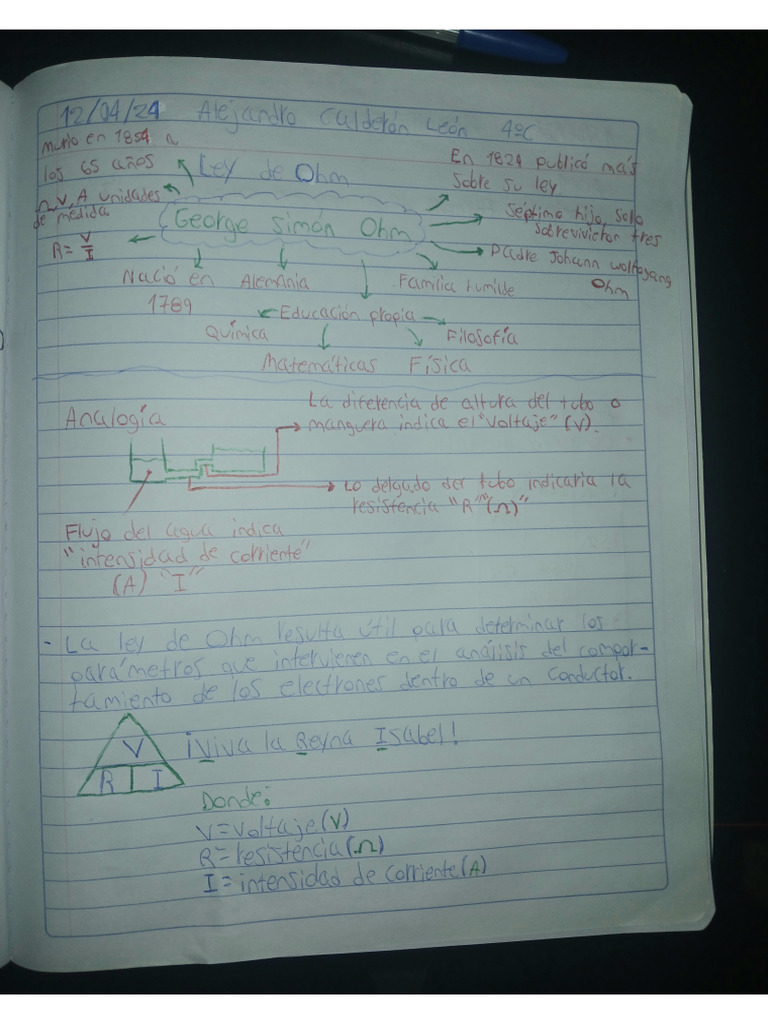 12/04/24 Alejandro Calderón León 4°C
murió en 1854 a
los 65 años
Ley de Ohm
En 1824 publicó más
sobre su ley
Ω, V, A unidades
de medida
George Simón Ohm
Séptimo hijo, solo
sobrevivieron tres
R = V/I
Padre Johann Wolfagang
Ohm
Nació en
1789
Alemania
Familia humilde
Educación propia
Química
Filosofía
Matemáticas
Física
Analogía
La diferencia de altura del tubo o
manguera indica el "Voltaje" (V).
Lo delgado del tubo indicaria la
resistencia "R" "(Ω)"
Flujo del agua indica
"intensidad de corriente"
(A) "I"
- La ley de Ohm resulta útil para determinar los
parámetros que intervienen en el análisis del compor-
tamiento de los electrones dentro de un conductor.
V
R I
¡Viva la Reyna Isabel!
Donde:
V=Voltaje(V)
R=resistencia(Ω)
I=intensidad de corriente(A)